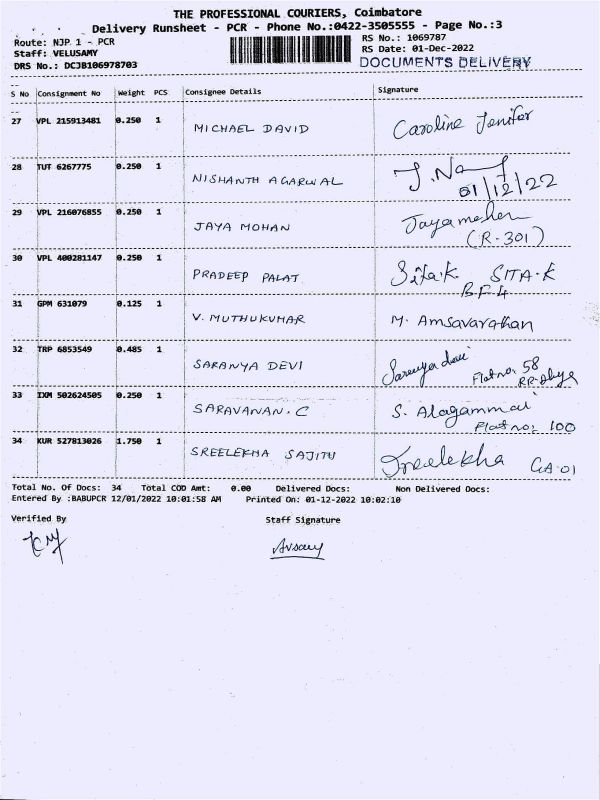 THE PROFESSIONAL COURIERS, Coimbatore
Delivery Runsheet - PCR - Phone No.:0422-3505555 - Page No.:3
Route: NJP 1 - PCR
RS No.: 1069787
Staff: VELUSAMY
RS Date: 01-Dec-2022
DRS No.: DCJB106978703
DOCUMENTS DELIVERY
S No Consignment No Weight PCS Consignee Details Signature
27 VPL 215913481 0.250 1 MICHAEL DAVID Caroline Jenifer
28 TUT 6267775 0.250 1 NISHANTH AGARWAL
01/12/22
29 VPL 216076855 0.250 1 JAYA MOHAN Jayamohan
(R-301)
30 VPL 400281147 0.250 1 PRADEEP PALAT SITA-K
BF4
31 GPM 631079 0.125 1 V. MUTHUKUMAR M. Amsavarathan
32 TRP 6853549 0.485 1 SARANYA DEVI Saranya devi
Flat no. 58
33 IXM 502624505 0.250 1 SARAVANAN. C S. Alagammai
Flat no: 100
34 KUR 527813026 1.750 1 SREELEKHA SAJITU Sreelekha GA-01
Total No. Of Docs: 34 Total COD Amt: 0.00 Delivered Docs: Non Delivered Docs:
Entered By :BABUPCR 12/01/2022 10:01:58 AM Printed On: 01-12-2022 10:02:10
Verified By Staff Signature